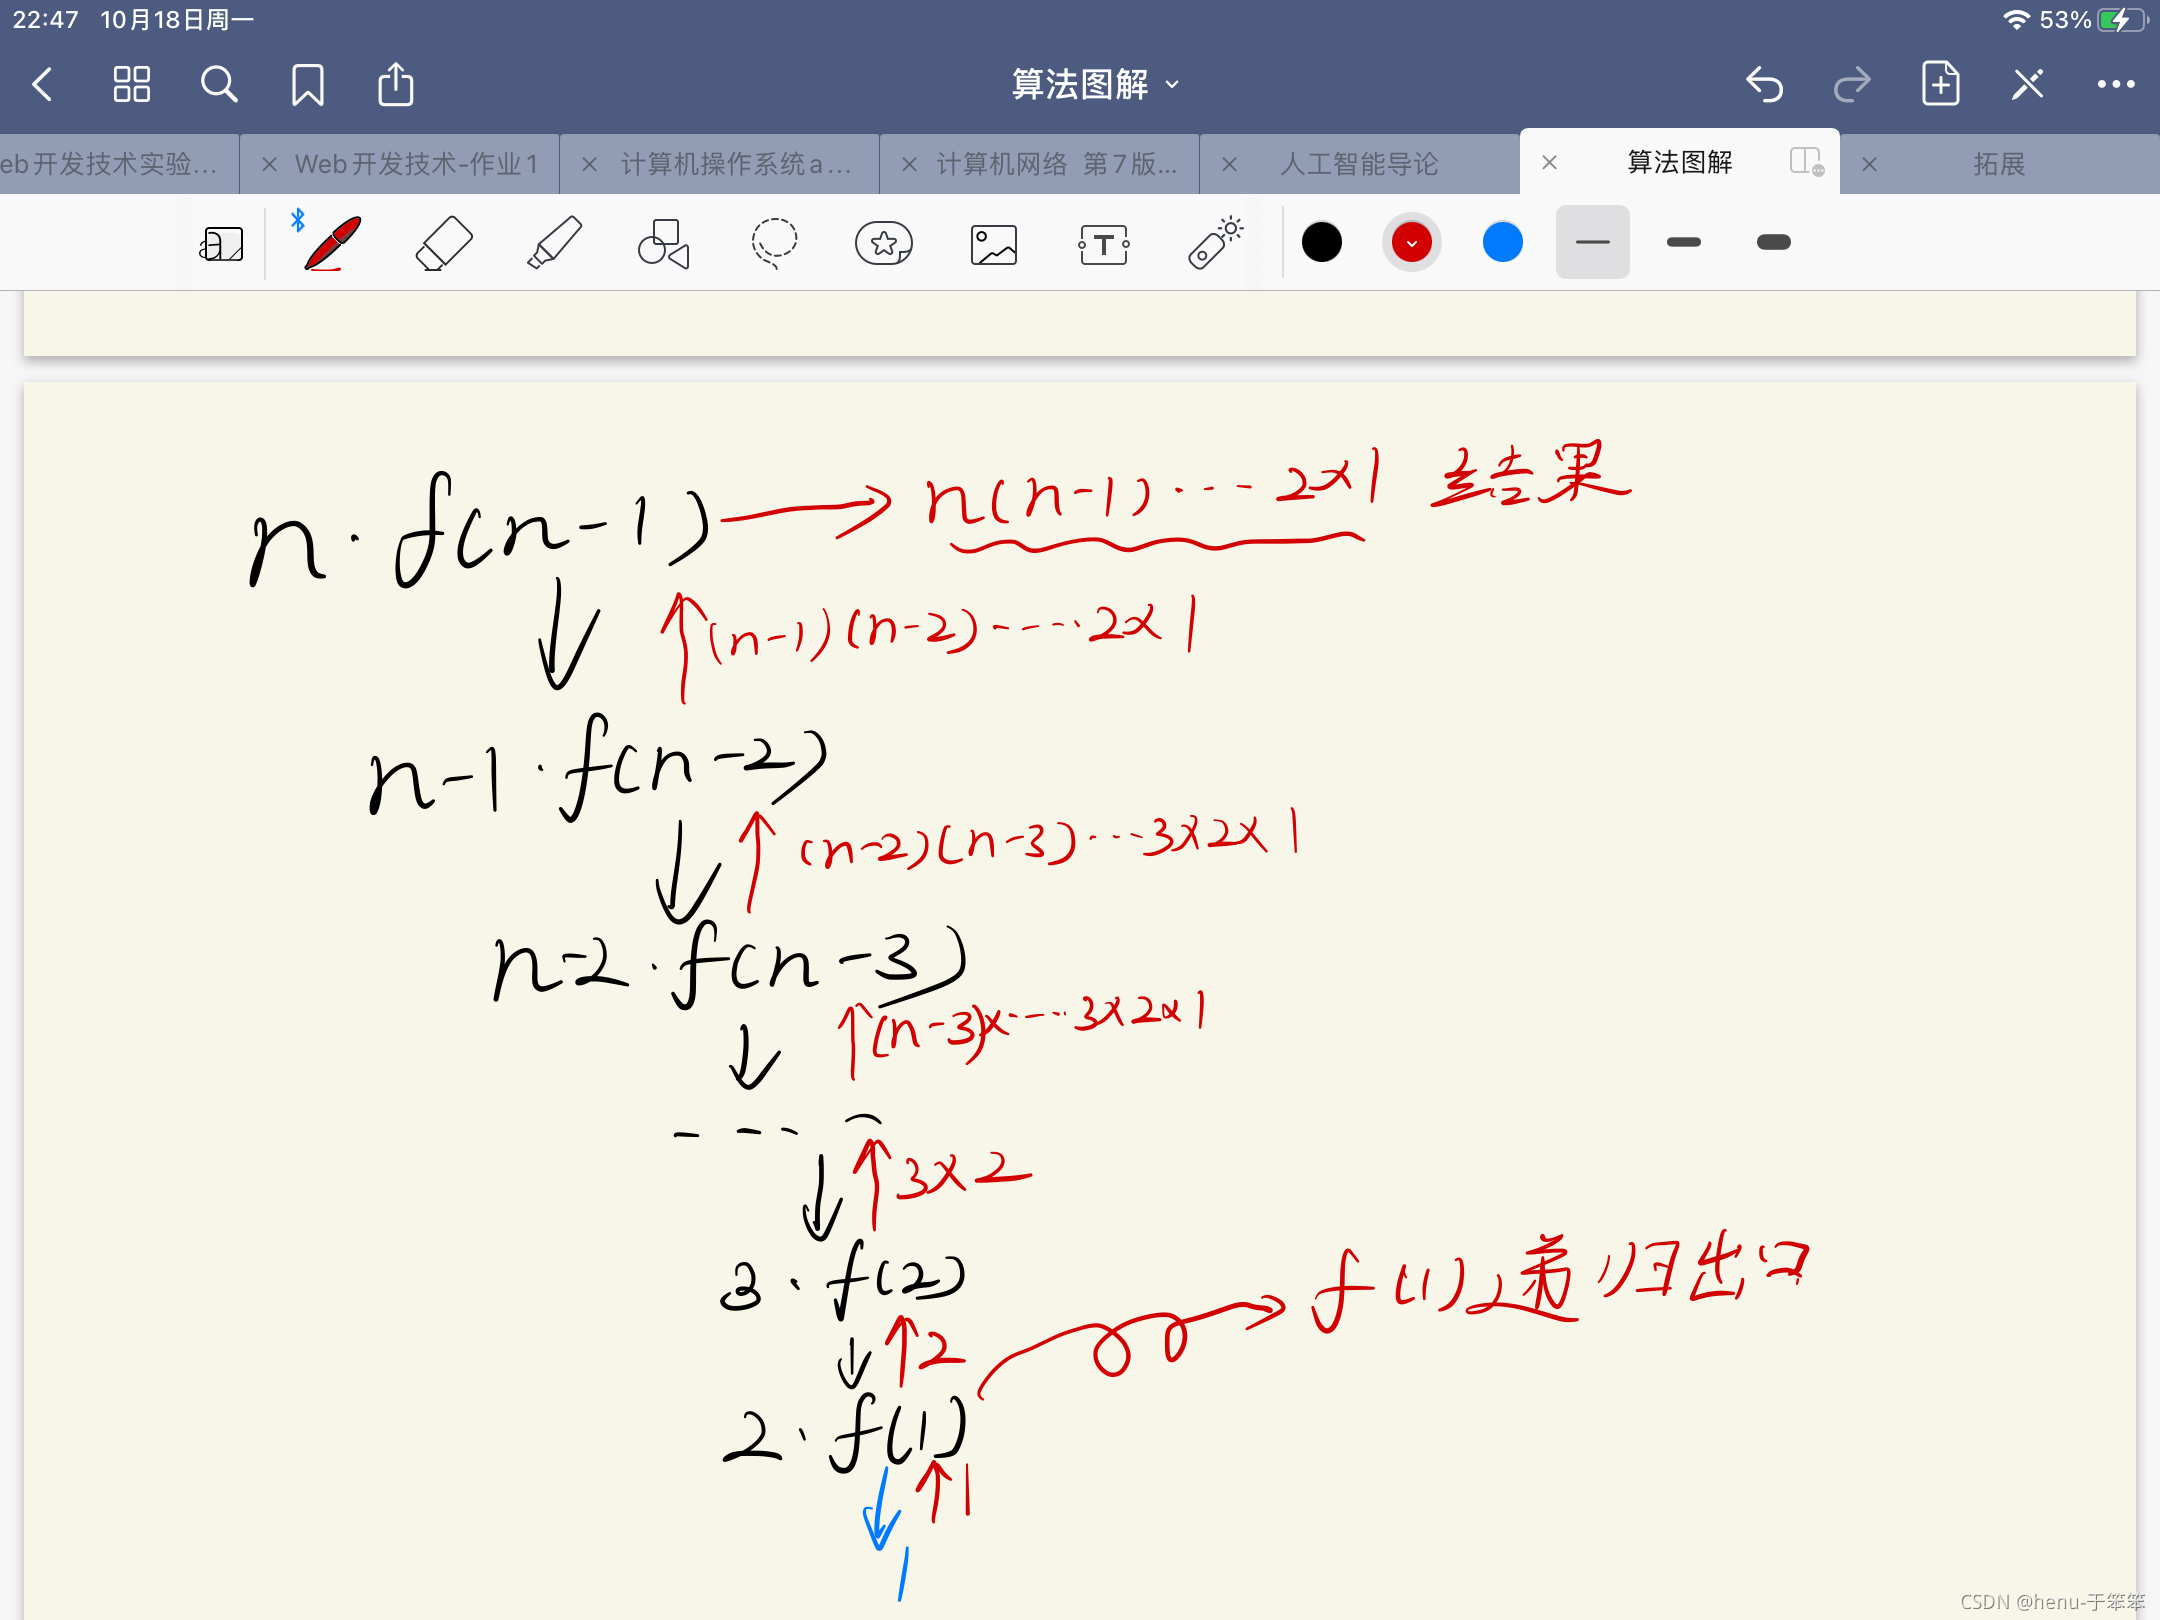 22:47 10月18日周一 53%
算法图解
eb开发技术实验... Web开发技术-作业1 计算机操作系统a... 计算机网络 第7版... 人工智能导论 算法图解 拓展
n·f(n-1) n(n-1)···2×1 结果
(n-1)(n-2)····2×1
n-1·f(n-2)
(n-2)(n-3)···3×2×1
n-2·f(n-3)
(n-3)×····3×2×1
....
3×2
3·f(2)
2
f(1) 递归出口
2·f(1)
1
1
CSDN @henu-于笨笨